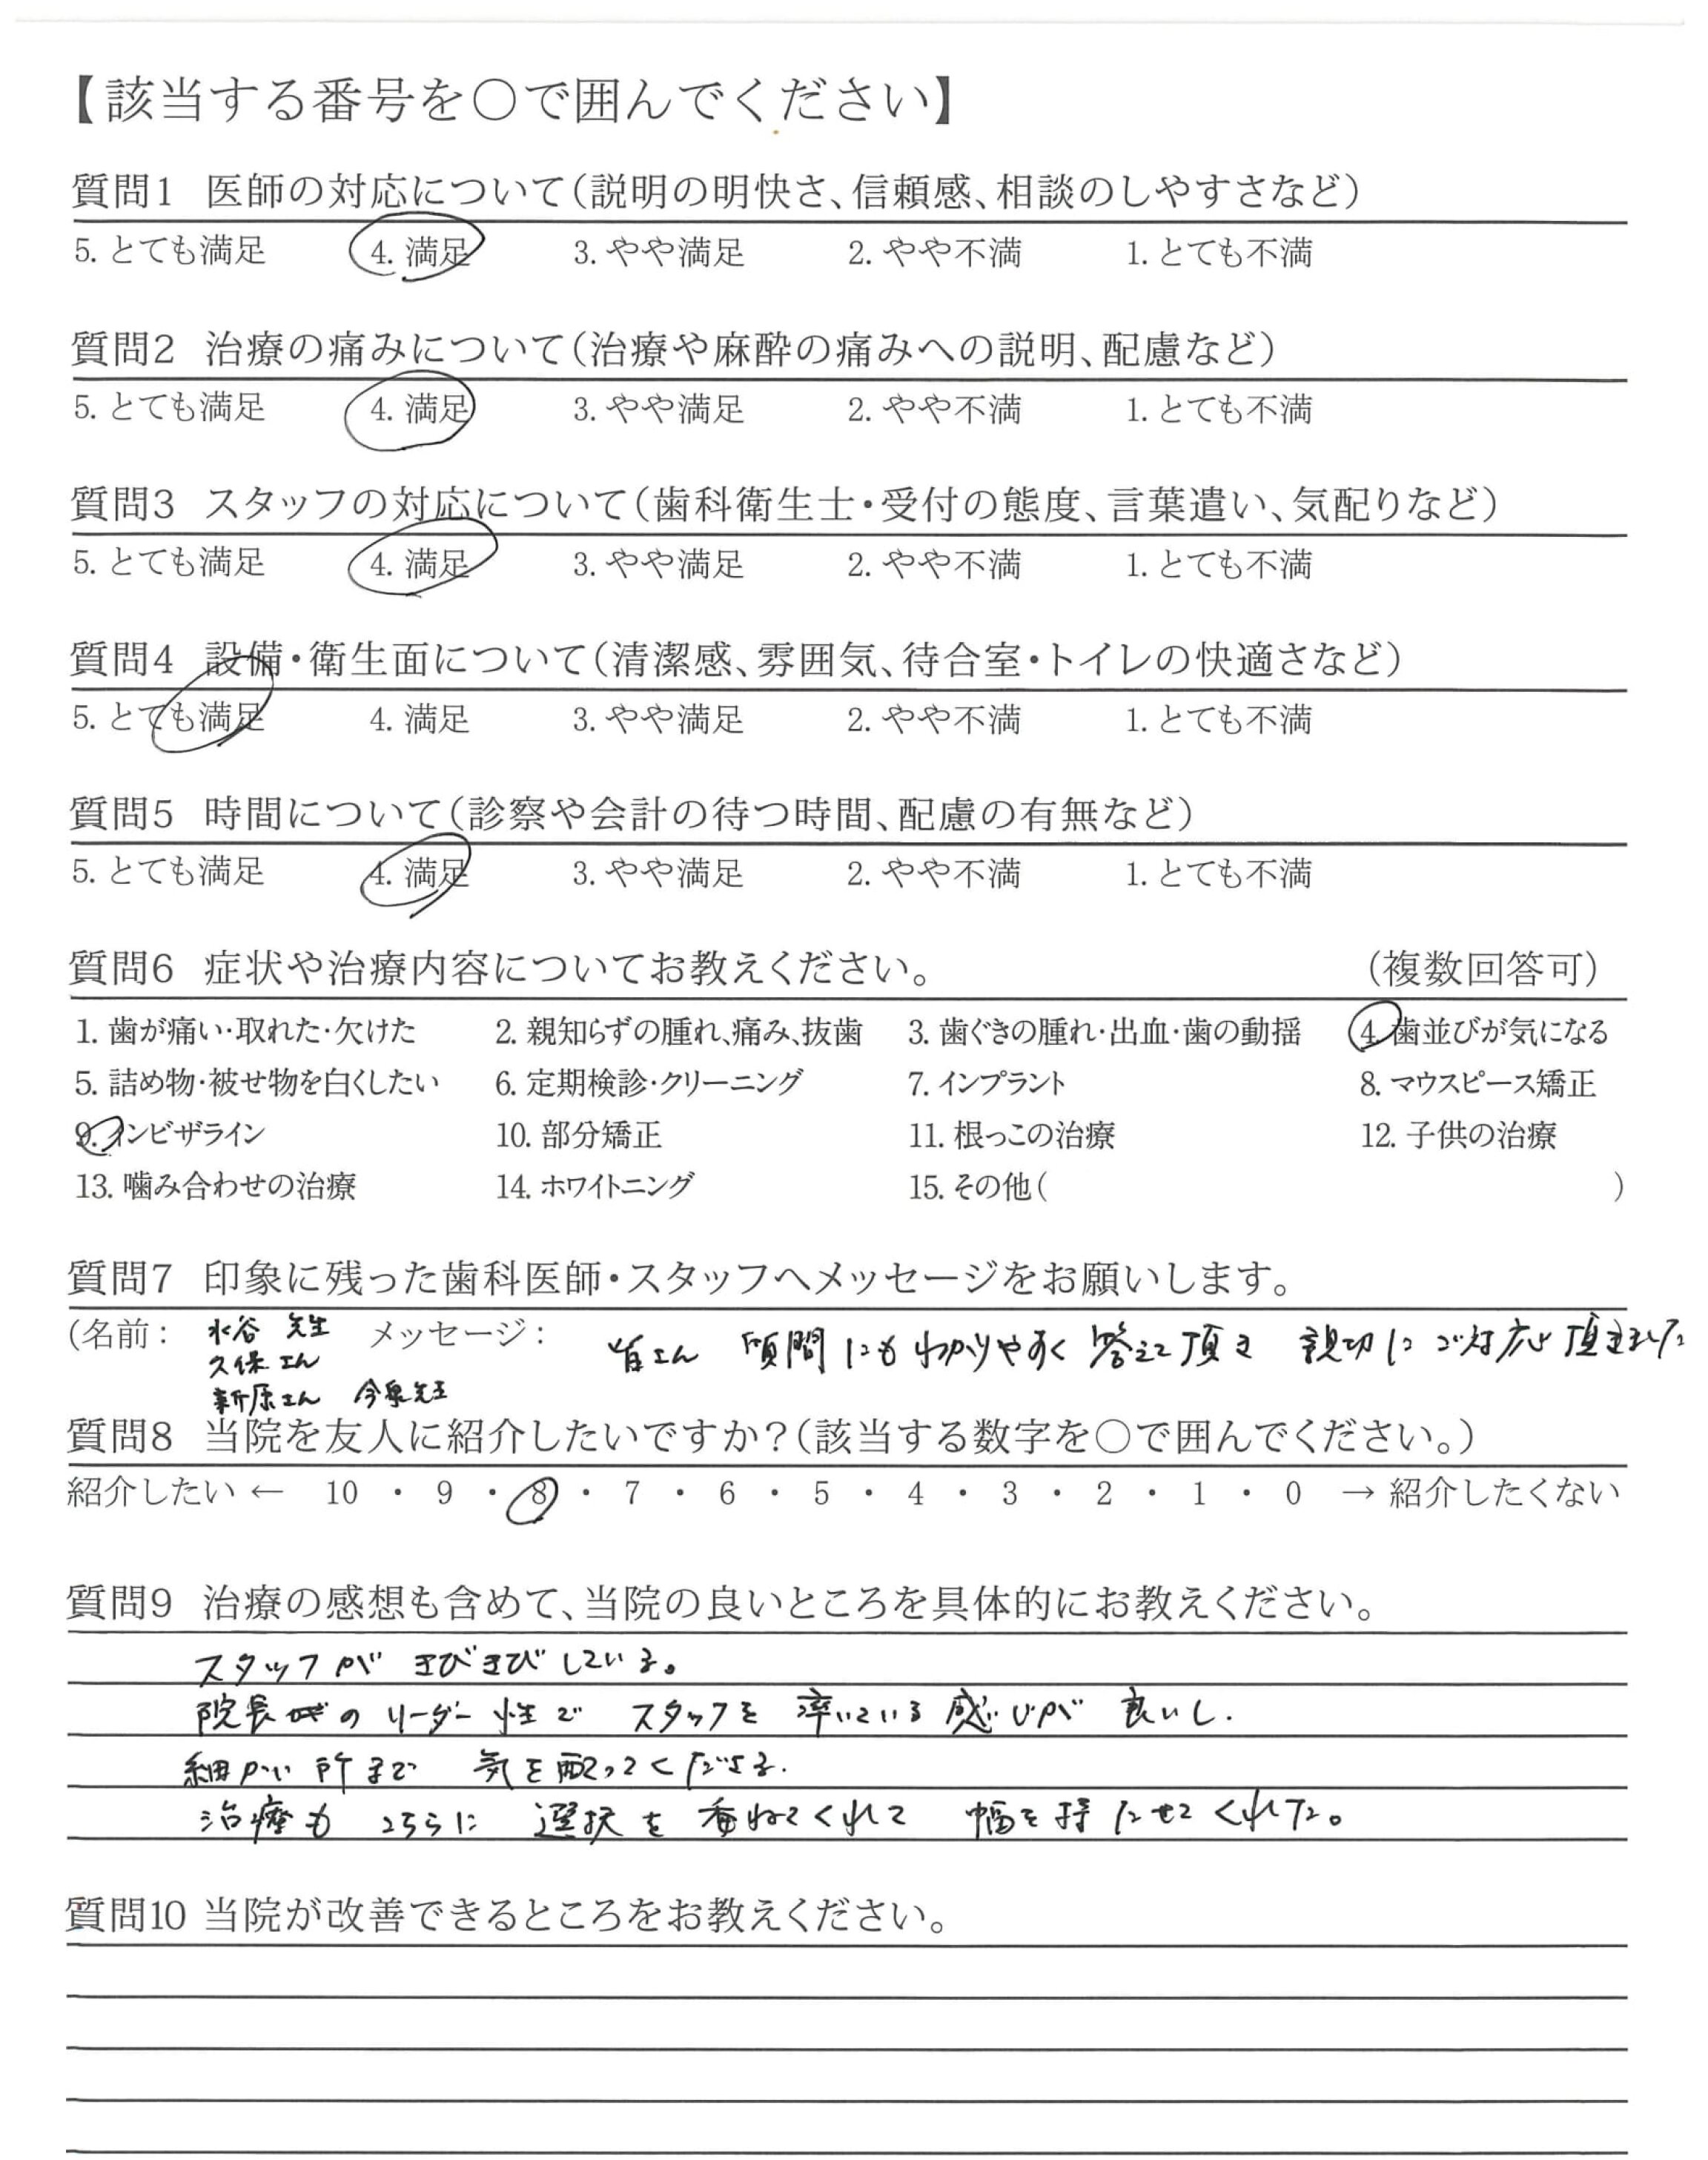 【該当する番号を○で囲んでください】
質問1 医師の対応について(説明の明快さ、信頼感、相談のしやすさなど)
5. とても満足 4. 満足 3. やや満足 2. やや不満 1. とても不満
質問2 治療の痛みについて(治療や麻酔の痛みへの説明、配慮など)
5. とても満足 4. 満足 3. やや満足 2. やや不満 1. とても不満
質問3 スタッフの対応について(歯科衛生士・受付の態度、言葉遣い、気配りなど)
5. とても満足 4. 満足 3. やや満足 2. やや不満 1. とても不満
質問4 設備・衛生面について(清潔感、雰囲気、待合室・トイレの快適さなど)
5. とても満足 4. 満足 3. やや満足 2. やや不満 1. とても不満
質問5 時間について(診察や会計の待つ時間、配慮の有無など)
5. とても満足 4. 満足 3. やや満足 2. やや不満 1. とても不満
質問6 症状や治療内容についてお教えください。 (複数回答可)
1. 歯が痛い・取れた・欠けた 2. 親知らずの腫れ、痛み、抜歯 3. 歯ぐきの腫れ・出血・歯の動揺 4. 歯並びが気になる
5. 詰め物・被せ物を白くしたい 6. 定期検診・クリーニング 7. インプラント 8. マウスピース矯正
9. インビザライン 10. 部分矯正 11. 根っこの治療 12. 子供の治療
13. 噛み合わせの治療 14. ホワイトニング 15. その他( )
質問7 印象に残った歯科医師・スタッフへメッセージをお願いします。
(名前: 水谷 先生 メッセージ: 皆さん 質問にもわかりやすく 答えて頂き 親切に ご対応 頂きました
久保さん
新原さん 今泉先生
質問8 当院を友人に紹介したいですか?(該当する数字を○で囲んでください。)
紹介したい ← 10 ・ 9 ・ 8 ・ 7 ・ 6 ・ 5 ・ 4 ・ 3 ・ 2 ・ 1 ・ 0 → 紹介したくない
質問9 治療の感想も含めて、当院の良いところを具体的にお教えください。
スタッフが きびきびしている。
院長 のリーダー性で スタッフを 率いている 感じが 良いし.
細かい所まで 気を配ってくださる.
治療も こちらに 選択を 委ねてくれて 幅を持たせてくれた。
質問10 当院が改善できるところをお教えください。